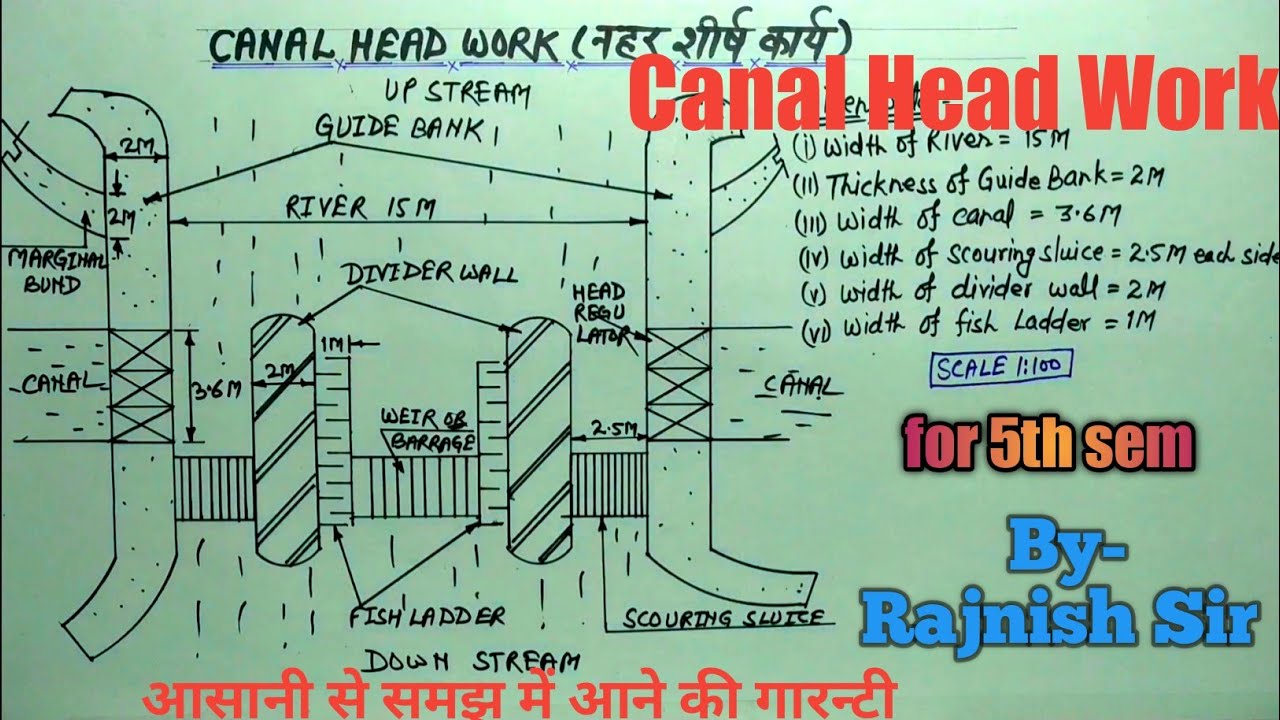 CANAL HEAD WORK (नहर शीर्ष कार्य)
Canal Head Work
UP STREAM
GUIDE BANK
2M
RIVER 15 M
2M
MARGINAL
BUND
DIVIDER WALL
HEAD
REGU
LATOR
1M
2M
3.6M
CANAL
CANAL
WEIR OR
BARRAGE
2.5M
FISH LADDER
SCOURING SLUICE
DOWN STREAM
(i) Width of River = 15 M
(ii) Thickness of Guide Bank = 2M
(iii) Width of canal = 3.6M
(iv) Width of scouring sluice = 2.5M each side
(v) Width of divider wall = 2M
(vi) Width of fish Ladder = 1M
SCALE 1:100
for 5th sem
By-
Rajnish Sir
आसानी से समझ में आने की गारन्टी